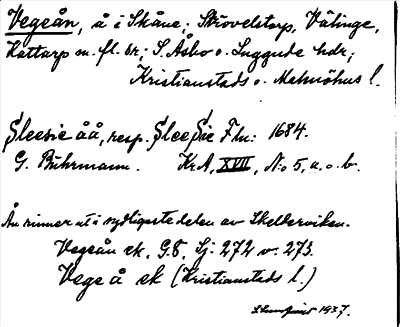 Vegeån, å i Skåne: Strövelstorp, Välinge,
Kattarp m. fl. br; S. Åsbo o. Luggude hdr;
Kristianstads o. Malmöhus l.
Sleesie åå, resp. SleeSie Flu: 1684.
G. Buhrmann. KrA, XVII, N:o 5, a. o. b.
Ån rinner ut i sydligaste delen av Skelderviken.
Vegeån ek, G.8, Sj: 272 o. 273.
Vege å ek (Kristianstads l.)
1937.